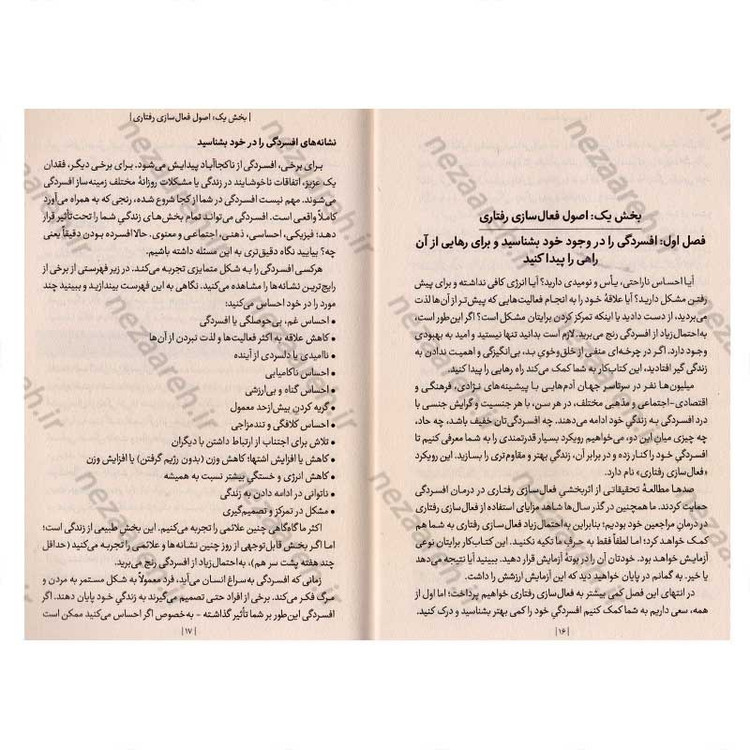 بخش یک: اصول فعال‌سازی رفتاری
فصل اول: افسردگی را در وجود خود بشناسید و برای رهایی از آن
راهی را پیدا کنید
آیا احساس ناراحتی، یأس و نومیدی دارید؟ آیا انرژی کافی نداشته و برای پیش
رفتن مشکل دارید؟ آیا علاقهٔ خود را به انجام فعالیت‌هایی که پیش‌تر از آن‌ها لذت
می‌بردید، از دست دادید یا اینکه تمرکز کردن برایتان مشکل است؟ اگر این‌طور است،
به‌احتمال‌زیاد از افسردگی رنج می‌برید. لازم است بدانید تنها نیستید و امید به بهبودی
وجود دارد. اگر در چرخه‌ای منفی از خلق‌وخوی بد، بی‌انگیزگی و اهمیت ندادن به
زندگی گیر افتادید، این کتاب‌کار به شما کمک می‌کند راه رهایی را پیدا کنید.
میلیون‌ها نفر در سرتاسر جهان آدم‌هایی با پیشینه‌های نژادی، فرهنگی و
اقتصادی-اجتماعی و مذهبی مختلف، در هر سن، با هر جنسیت و گرایش جنسی با
درد افسردگی به زندگیِ خود ادامه می‌دهند. چه افسردگی‌تان خفیف باشد، چه حاد،
چه چیزی میان این دو، می‌خواهیم رویکرد بسیار قدرتمندی را به شما معرفی کنیم تا
افسردگی خود را کنار زده و در برابر آن، زندگی بهتر و مقاوم‌تری را بسازید. این رویکرد
«فعال‌سازی رفتاری» نام دارد.
صدها مطالعهٔ تحقیقاتی از اثربخشیِ فعال‌سازی رفتاری در درمان افسردگی
حمایت کردند. ما همچنین در گذر سال‌ها شاهد مزایای استفاده از فعال‌سازی رفتاری
در درمانِ مراجعین خود بودیم؛ بنابراین به‌احتمال‌زیاد فعال‌سازی رفتاری به شما هم
کمک خواهد کرد؛ اما لطفاً فقط به حرف ما تکیه نکنید. این کتاب‌کار برایتان نوعی
آزمایش خواهد بود. خودتان آن را در بوتهٔ آزمایش قرار دهید. ببینید آیا نتیجه می‌دهد
یا خیر. به گمانم در پایان خواهید دید که این آزمایش ارزشش را داشت.
در انتهای این فصل کمی بیشتر به فعال‌سازی رفتاری خواهیم پرداخت؛ اما اول از
همه، سعی داریم به شما کمک کنیم افسردگیِ خود را کمی بهتر بشناسید و درک کنید.
| ۱۶ |
| بخش یک: اصول فعال‌سازی رفتاری |
نشانه‌های افسردگی را در خود بشناسید
برای برخی، افسردگی از ناکجاآباد پیدایش می‌شود. برای برخی دیگر، فقدان
یک عزیز، اتفاقات ناخوشایند در زندگی یا مشکلات روزانهٔ مختلف زمینه‌ساز افسردگی
می‌شوند. مهم نیست افسردگی در شما از کجا شروع شده، رنجی که به همراه می‌آورد
کاملاً واقعی است. افسردگی می‌تواند تمام بخش‌های زندگیِ شما را تحت‌تأثیر قرار
دهد؛ فیزیکی، احساسی، ذهنی، اجتماعی و معنوی. حالا افسرده بودن دقیقاً یعنی
چه؟ بیایید نگاه دقیق‌تری به این مسئله داشته باشیم.
هرکسی افسردگی را به شکل متمایزی تجربه می‌کند. در زیر فهرستی از برخی از
رایج‌ترین نشانه‌ها را مشاهده می‌کنید. نگاهی به این فهرست بیندازید و ببینید چند
مورد را در خود احساس می‌کنید:
• احساس غم، بی‌حوصلگی یا افسردگی
• کاهش علاقه به اکثر فعالیت‌ها و لذت نبردن از آن‌ها
• ناامیدی یا دلسردی از آینده
• احساس ناکامیابی
• احساس گناه و بی‌ارزشی
• گریه کردن بیش‌ازحد معمول
• احساس کلافگی و تندمزاجی
• تلاش برای اجتناب از ارتباط داشتن با دیگران
• کاهش یا افزایش اشتها؛ کاهش وزن (بدون رژیم گرفتن) یا افزایش وزن
• کاهش انرژی و خستگیِ بیشتر نسبت به همیشه
• ناتوانی در ادامه دادن به زندگی
• مشکل در تمرکز و تصمیم‌گیری
اکثر ما گاه‌گاهی چنین علائمی را تجربه می‌کنیم. این بخش طبیعی از زندگی است؛
اما اگر بخش قابل‌توجهی از روز چنین نشانه‌ها و علائمی را تجربه می‌کنید (حداقل
چند هفته پشت سر هم)، به‌احتمال‌زیاد از افسردگی رنج می‌برید.
زمانی که افسردگی به‌سراغ انسان می‌آید، فرد معمولاً به شکل مستمر به مردن و
مرگ فکر می‌کند. برخی از افراد حتی تصمیم می‌گیرند به زندگیِ خود پایان دهند. اگر
افسردگی این‌طور بر شما تأثیر گذاشته - به‌خصوص اگر احساس می‌کنید ممکن است
| ۱۷ |
nezaareh.ir